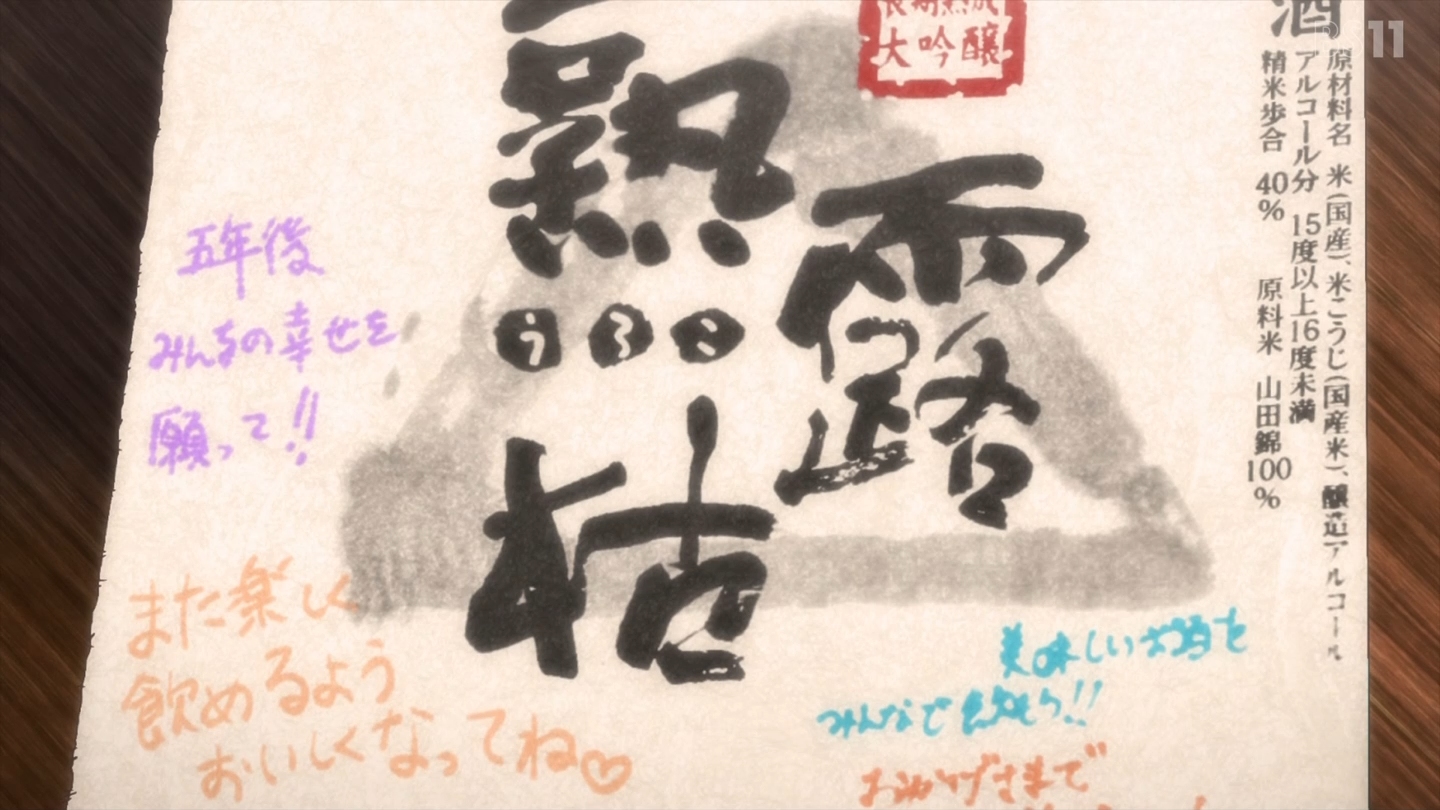 酒
原材料名 米(国産)、米こうじ(国産米)、醸造アルコール
アルコール分 15度以上16度未満
精米歩合 40% 原料米 山田錦100%
大吟醸
露
熟
うろこ
枯
五年後
みんなの幸せを
願って!!
また楽しく
飲めるよう
おいしくなってね♡
美味しいお酒を
みんなで飲もう!!
おかげさまで
11